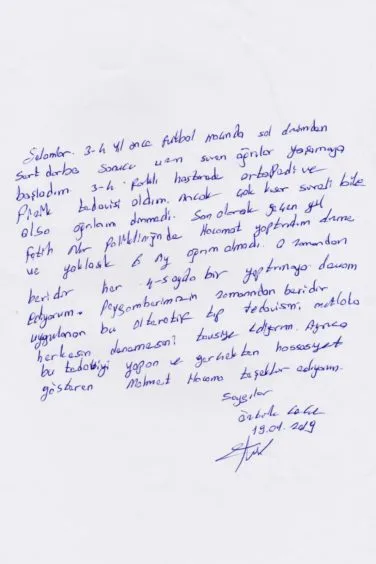 Selamlar. 3-4 yıl önce futbol maçında sol dizimden
sert darbe sonucu uzun süren ağrılar yaşamaya
başladım. 3-4 farklı hastanede ortopedi ve
tedavisi oldum. Ancak çok kısa süreli bile
olsa ağrılarım dinmedi. Son olarak geçen yıl
Fatih Nur Polikliniğinde Hacamat yaptırdım dizime
ve yaklaşık 6 ay ağrım olmadı. O zamandan
beridir her 4-5 ayda bir yaptırmaya devam
ediyorum. Peygamberimizin zamanından beridir
uygulanan bu alternatif tıp tedavisini mutlaka
herkesin denemesini tavsiye ediyorum. Ayrıca
bu tedaviyi yapan ve gerçekten hassasiyet
gösteren Mehmet Hocama teşekkür ediyorum.
Saygılar
19.01.2019